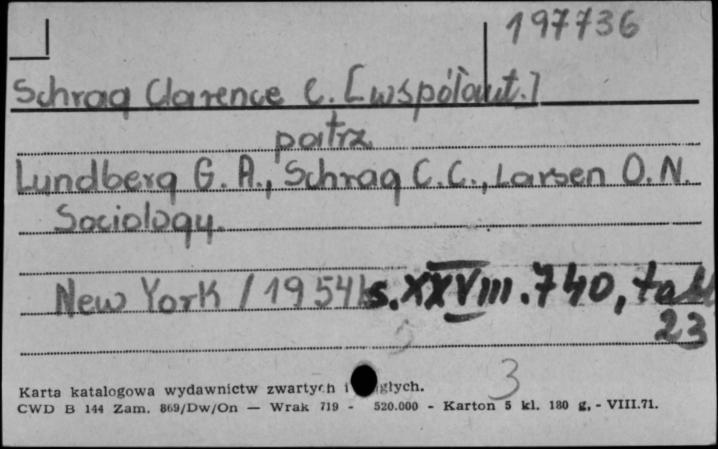 197736
Schrag Clarence C. [współaut.]
patrz
Lundberg G. A., Schrag C. C., Larsen O. N.
Sociology.
New York /1954/ s. XXVIII. 740, tabl
23
3
Karta katalogowa wydawnictw zwartych i głych.
CWD B 144 Zam. 869/Dw/On — Wrak 719 - 520.000 - Karton 5 kl. 180 g. - VIII.71.